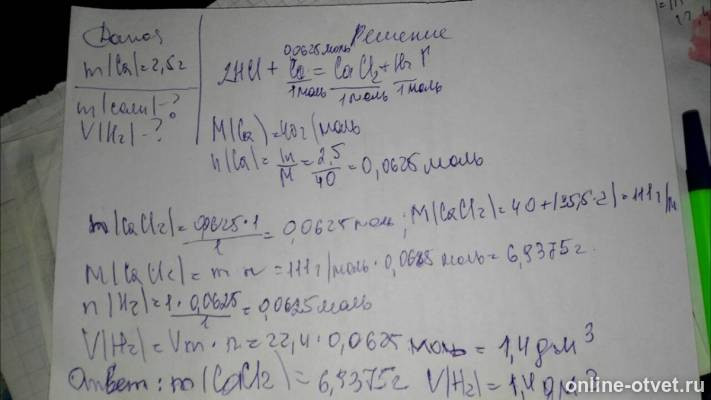 Дано:
m(Ca)=2,5г
m(соли)-?
V(H2)-?
Решение
0,0625 моль
2HCl + Ca = CaCl2 + H2↑
1 моль 1 моль 1 моль
M(Ca)=40г/моль
n(Ca)=m/M=2,5/40=0,0625 моль
n(CaCl2)=0,0625·1/1=0,0625 моль; M(CaCl2)=40+(35,5·2)=111г/м
M(CaCl2)=m n=111г/моль·0,0625 моль=6,9375г.
n(H2)=1·0,0625/1=0,0625 моль
V(H2)=Vm·n=22,4·0,0625 моль=1,4дм3
Ответ: m(CaCl2)=6,9375г V(H2)=1,4дм3
online-otvet.ru